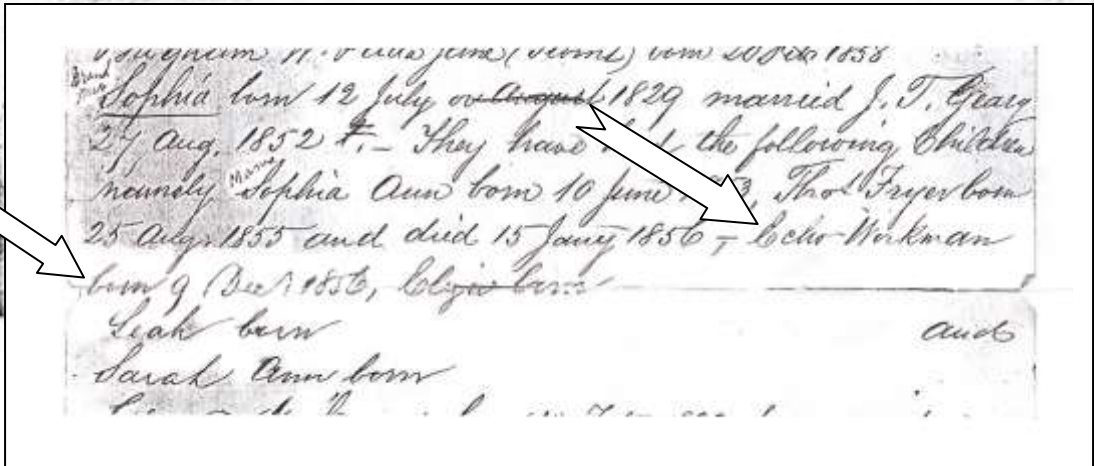 born 20 Feb 1858
Sophia born 12 July or August 1829 married J. T. Geary
27 Aug. 1852 - They have had the following Children
namely Sophia Ann born 10 June Thos Fryer born
25 Augt 1855 and died 15 Jany 1856 - Echo Workman
born 9 Dec 1856, born
Leah born and
Sarah Ann born